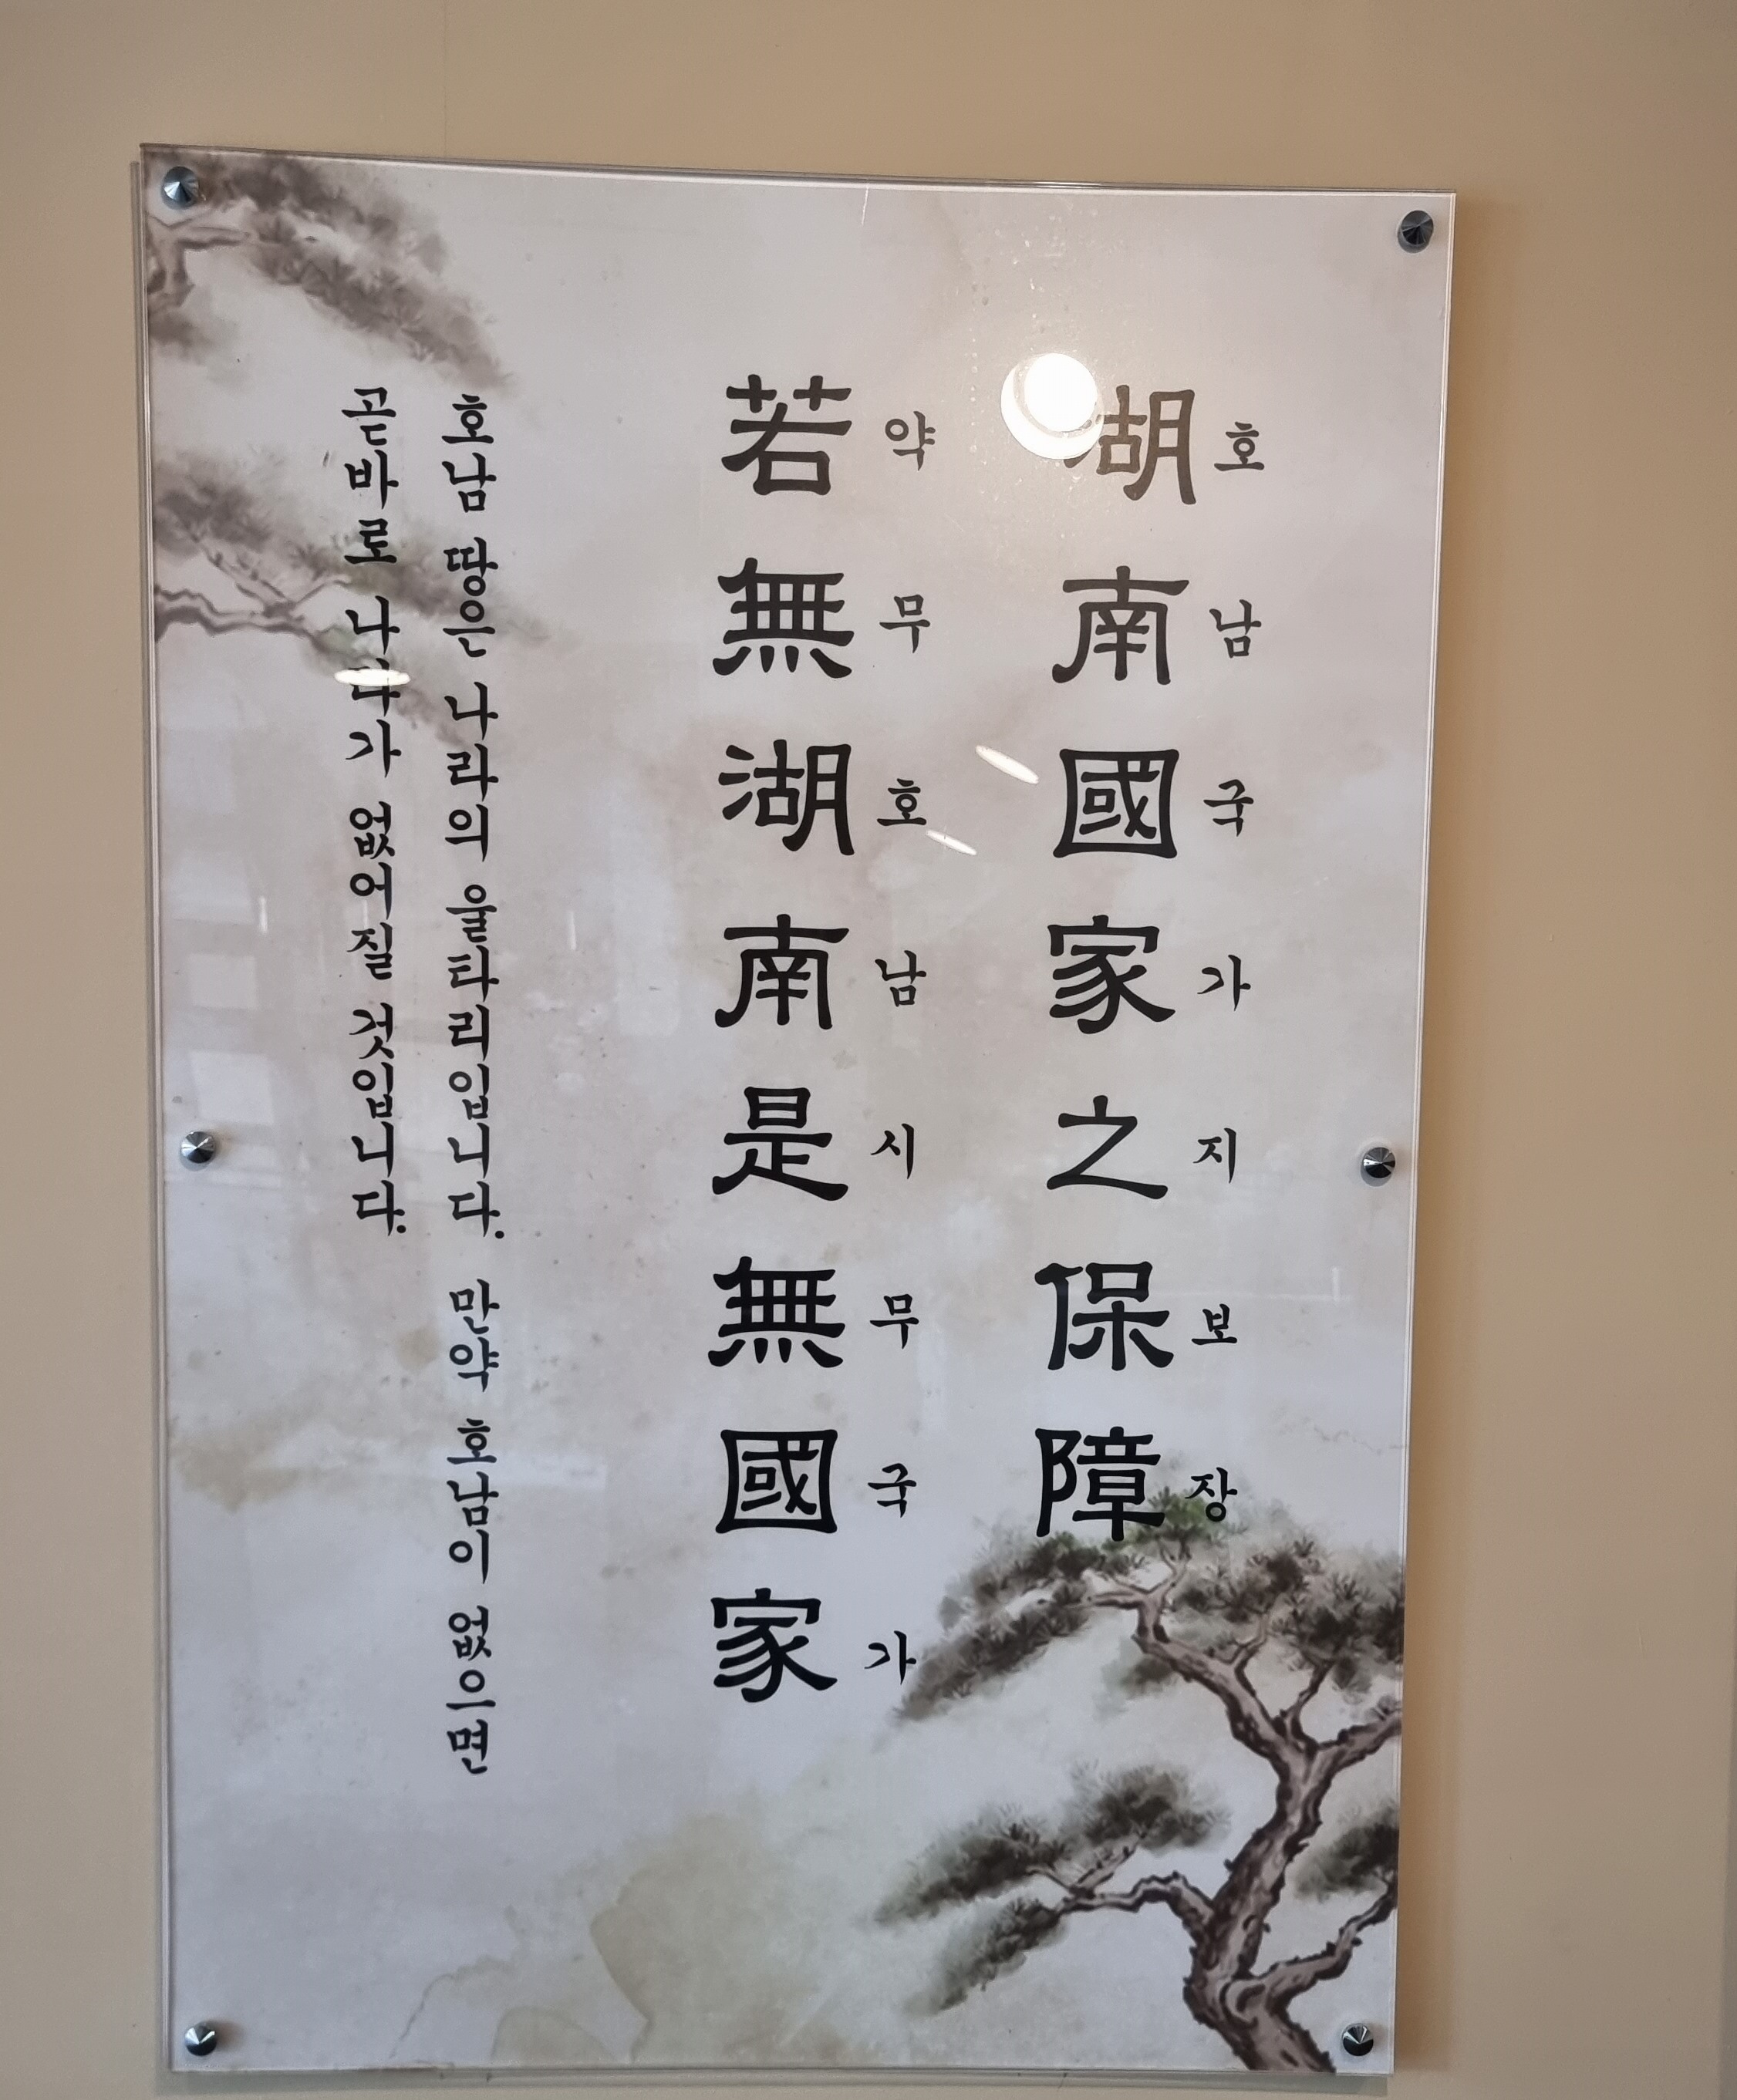 湖南國家之保障
호남국가지보장
若無湖南是無國家
약무호남시무국가
호남 땅은 나라의 울타리입니다. 만약 호남이 없으면
곧바로 나라가 없어질 것입니다.